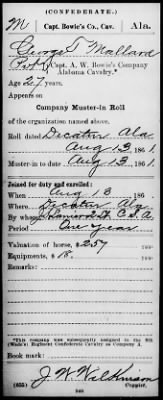 (CONFEDERATE.)
M Capt. Bowie's Co., Cav. Ala.
George T Mallard
Pvt, Capt. A. W. Bowie's Company
Alabama Cavalry.*
Age 27 years.
Appears on
Company Muster-in Roll
of the organization named above.
Roll dated Decatur Ala
Aug 13, 1861.
Muster-in to date Aug 13, 1861.
Joined for duty and enrolled:
When Aug 13, 186
Where Decatur Ala
By whom C.S.A.
Period One year
Valuation of horse, $ 257
Equipments, $ 18.
Remarks:
*This company was subsequently assigned to the 8th
(Wade's) Regiment Confederate Cavalry as Company A.
Book mark:
J. W. Wilkinson
(635) Copyist.